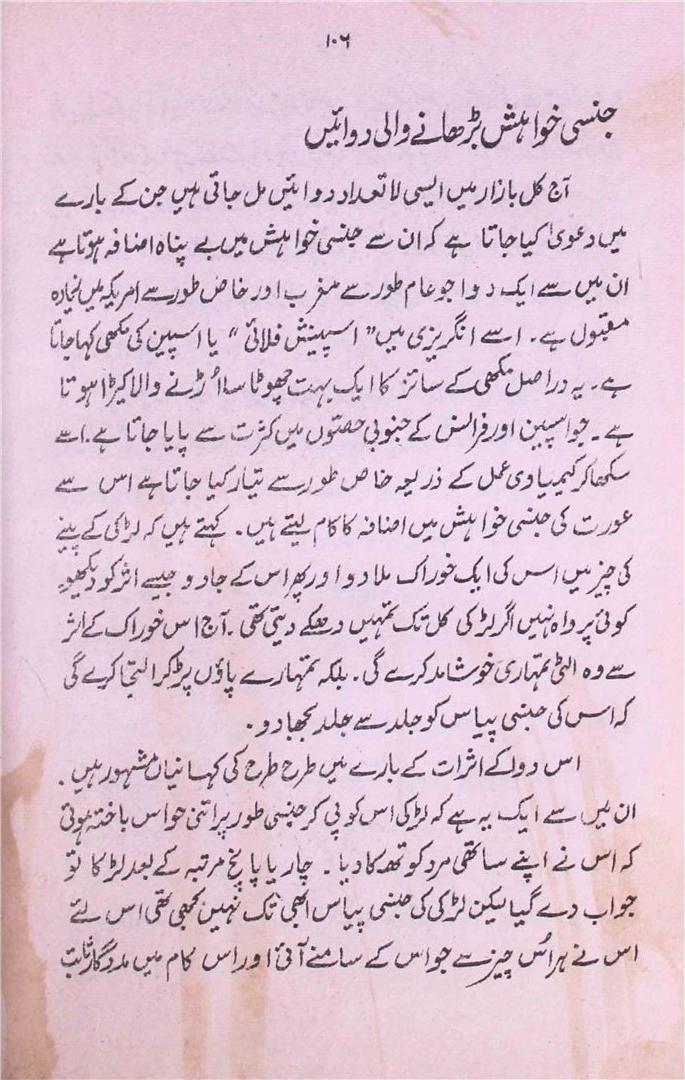 ۱۰۶
جنسی خواہش بڑھانے والی دوائیں
آج کل بازار میں ایسی لا تعداد دوائیں مل جاتی ہیں جن کے بارے
میں دعویٰ کیا جاتا ہے کہ ان سے جنسی خواہش میں بے پناہ اضافہ ہوتا ہے
ان میں سے ایک دوا جو عام طور سے مغرب اور خاص طور سے امریکہ میں زیادہ
مقبول ہے۔ اسے انگریزی میں "اسپینش فلائی" یا اسپین کی مکھی کہا جاتا
ہے۔ یہ دراصل مکھی کے سائز کا ایک بہت چھوٹا سا اُڑنے والا کیڑا ہوتا
ہے۔ جو اسپین اور فرانس کے جنوبی حصّوں میں کثرت سے پایا جاتا ہے۔ اسے
سکھا کر کیمیاوی عمل کے ذریعہ خاص طور سے تیار کیا جاتا ہے اس سے
عورت کی جنسی خواہش میں اضافہ کا کام لیتے ہیں۔ کہتے ہیں کہ لڑکی کے پینے
کی چیز میں اس کی ایک خوراک ملا دو اور پھر اس کے جادو جیسے اثر کو دیکھو۔
کوئی پرواہ نہیں اگر لڑکی کل تک تمہیں دھکے دیتی تھی۔ آج اس خوراک کے اثر
سے وہ الٹی تمہاری خوشامد کرے گی۔ بلکہ تمہارے پاؤں پڑ کر التجا کرے گی
کہ اس کی جنسی پیاس کو جلد سے جلد بجھا دو۔
اس دوا کے اثرات کے بارے میں طرح طرح کی کہانیاں مشہور ہیں۔
ان میں سے ایک یہ ہے کہ لڑکی اس کو پی کر جنسی طور پر اتنی حواس باختہ ہوئی
کہ اس نے اپنے ساتھی مرد کو تھکا دیا۔ چار یا پانچ مرتبہ کے بعد لڑکا تو
جواب دے گیا لیکن لڑکی کی جنسی پیاس ابھی تک نہیں بجھی تھی اس لئے
اس نے ہر اُس چیز سے جو اس کے سامنے آئی اور اس کام میں مددگار ثابت